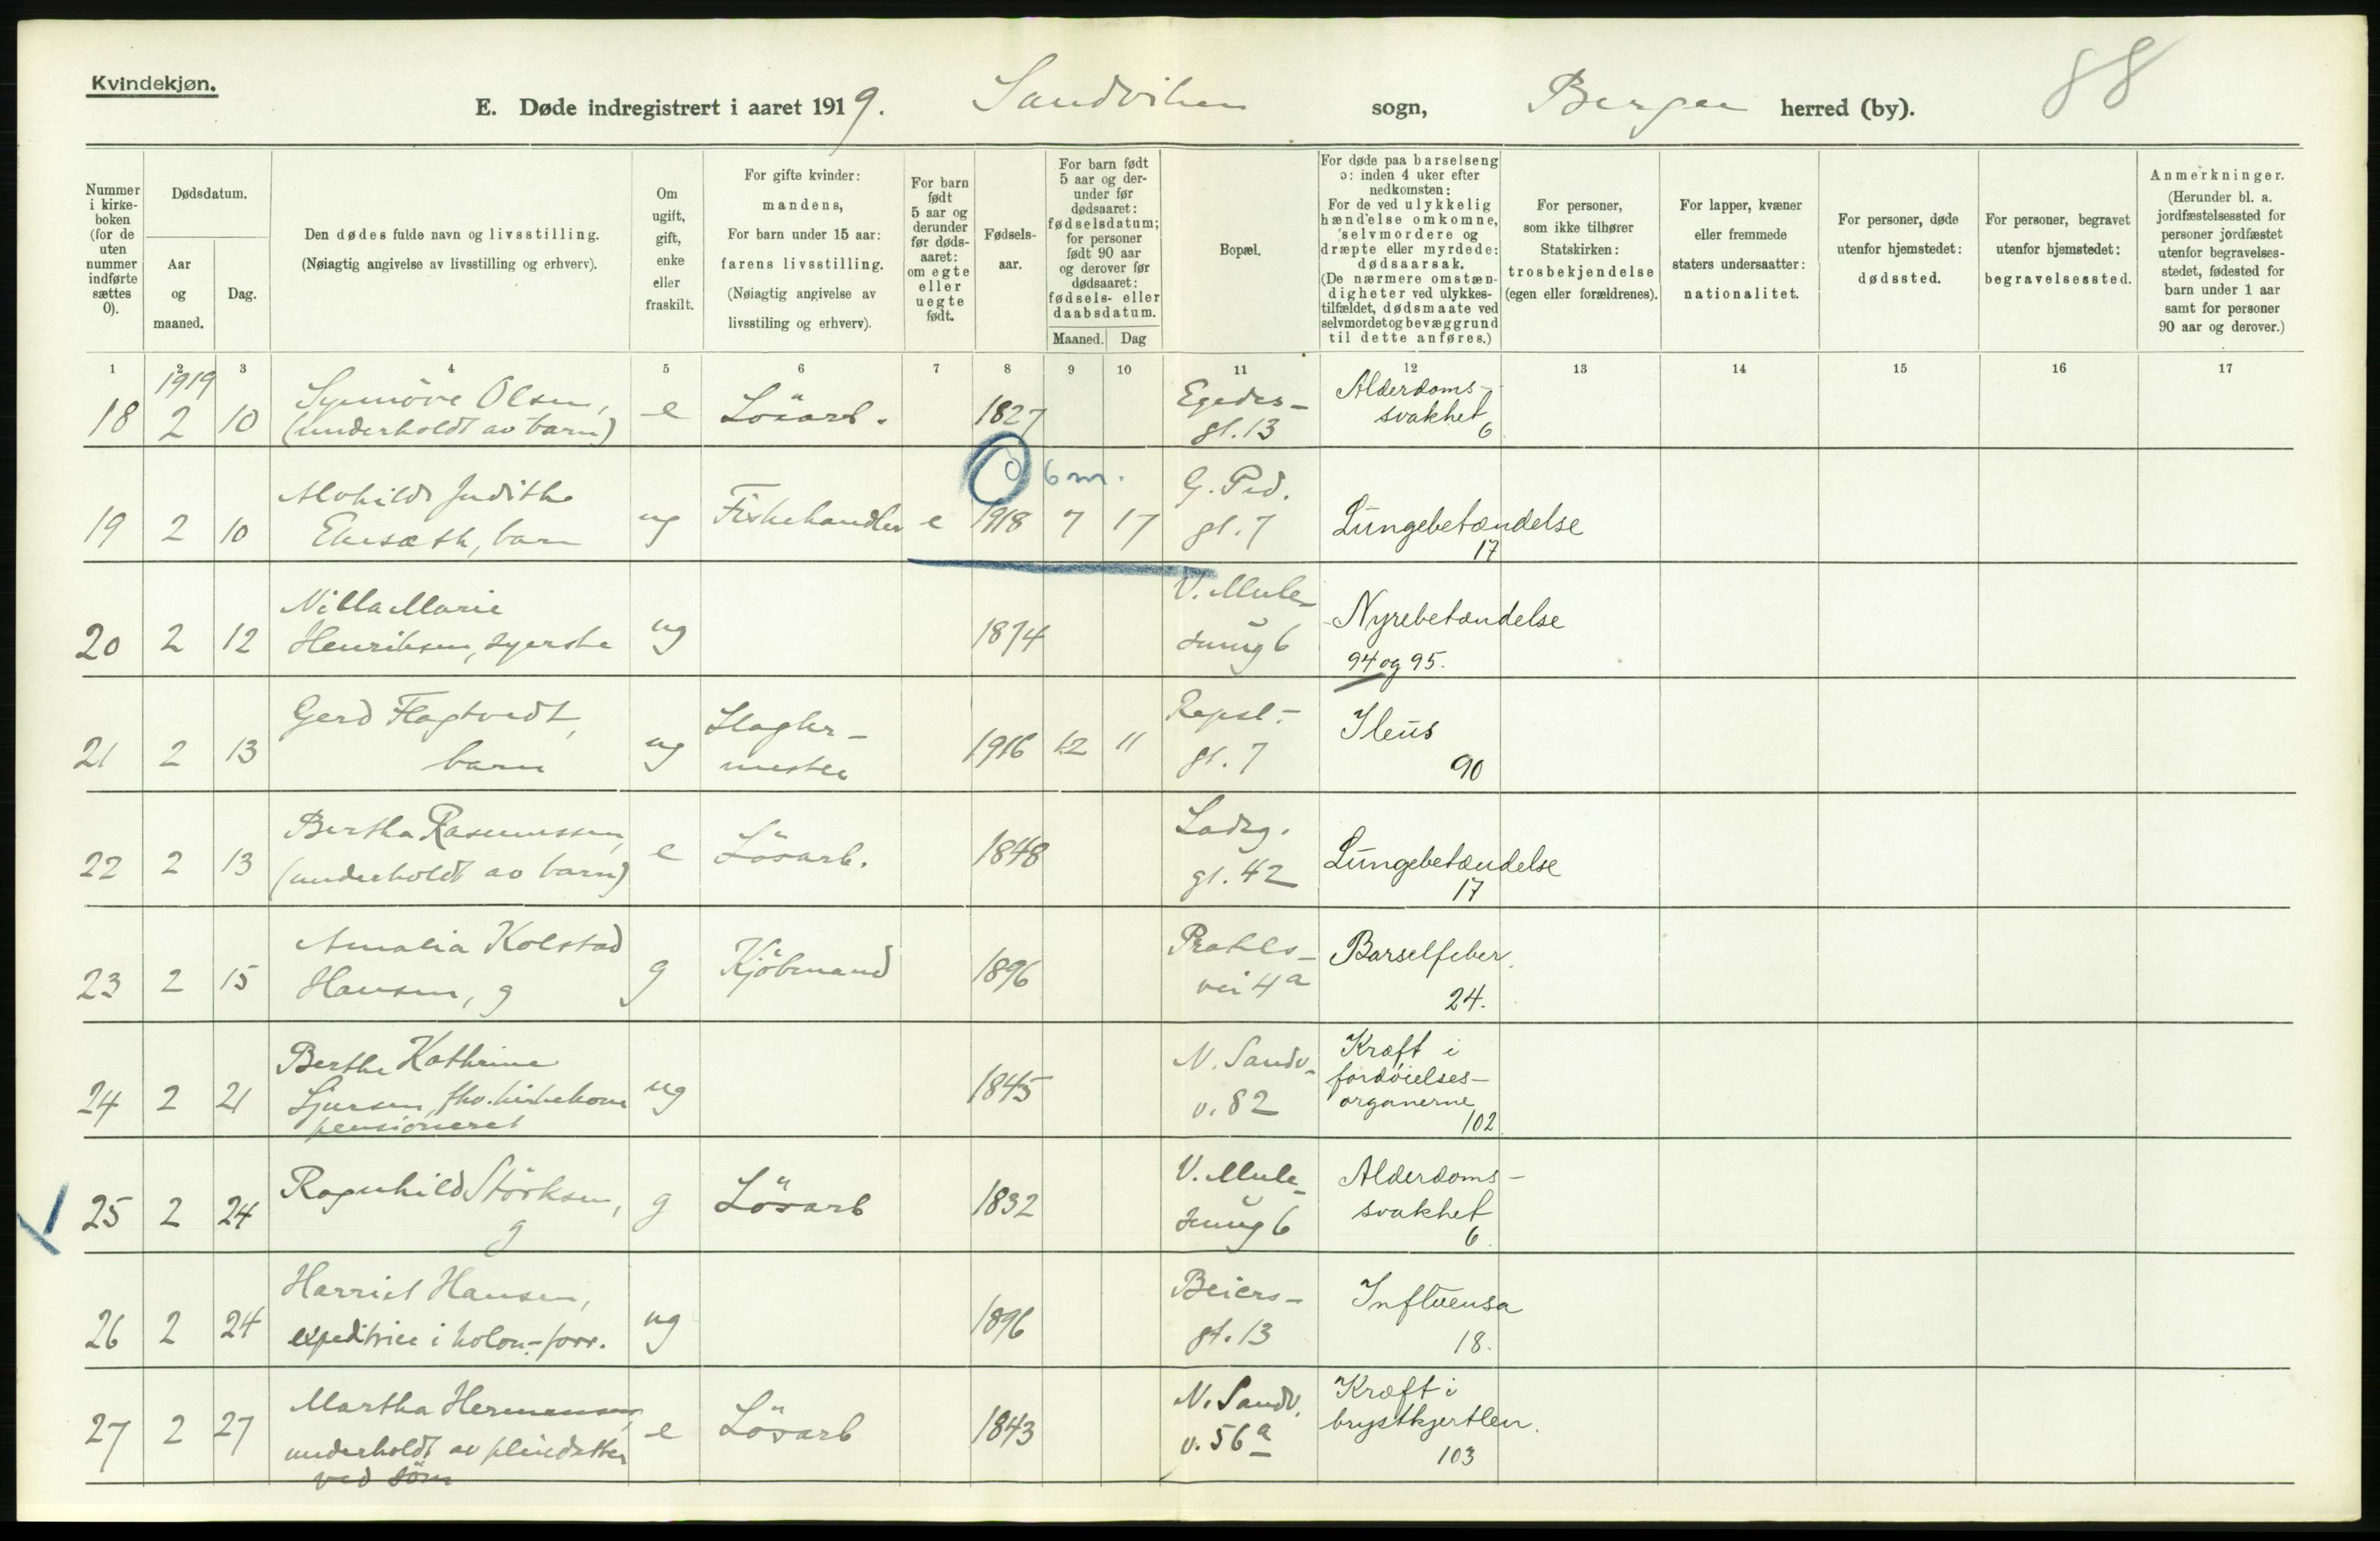 Kvindekjøn.
88
E. Døde indregistrert i aaret 1919. Sandviken sogn, Bergen herred (by).
Nummer i kirkeboken (for de uten nummer indførte sættes 0).
Dødsdatum.
Aar og maaned.
Dag.
Den dødes fulde navn og livsstilling.
(Nøiagtig angivelse av livsstilling og erhverv).
Om ugift, gift, enke eller fraskilt.
For gifte kvinder: mandens,
For barn under 15 aar: farens livsstilling.
(Nøiagtig angivelse av livsstiling og erhverv).
For barn født 5 aar og derunder før dødsaaret: om egte eller uegte født.
Fødselsaar.
For barn født 5 aar og derunder før dødsaaret: fødselsdatum; for personer født 90 aar og derover før dødsaaret: fødsels- eller daabsdatum.
Maaned. Dag
Bopæl.
For døde paa barselseng ɔ: inden 4 uker efter nedkomsten:
For de ved ulykkelig hændelse omkomne, selvmordere og dræpte eller myrdede: dødsaarsak.
(De nærmere omstændigheter ved ulykkestilfældet, dødsmaate ved selvmordet og bevæggrund til dette anføres.)
For personer, som ikke tilhører Statskirken: trosbekjendelse (egen eller forældrenes).
For lapper, kvæner eller fremmede staters undersaatter: nationalitet.
For personer, døde utenfor hjemstedet: dødssted.
For personer, begravet utenfor hjemstedet: begravelsessted.
Anmerkninger.
(Herunder bl. a. jordfæstelsessted for personer jordfæstet utenfor begravelsesstedet, fødested for barn under 1 aar samt for personer 90 aar og derover.)
1 2 3 4 5 6 7 8 9 10 11 12 13 14 15 16 17
1919
18 2 10 Synnöve Olsen, (underholdt av barn) e Lösarb. 1827 Egedes- gt. 13 Alderdoms- svakhet 6
0 6 m.
19 2 10 Alvhild Judithe barn ug Fiskehandler e 1918 7 17 G. Ped. gt. 7 Lungebetændelse 17
20 2 12 Nilla Marie Henriksen, syerske ug 1874 V. Mule- smug 6 Nyrebetændelse 94 og 95.
21 2 13 Gerd Flagtvedt, barn ug Slagter- mester 1916 12 11 Repsl.- gt. 7 Ileus 90
22 2 13 Bertha Rasmussen, (underholdt av barn) e Lösarb. 1848 Ladeg. gt. 42 Lungebetændelse 17
23 2 15 Amalia Kolstad Hansen, g g Kjöbmand 1896 Prahls- vei 4a Barselfeber. 24.
24 2 21 Berthe Kathrine pensioneret ug 1845 N. Sandv.- v. 82 Kræft i fordöielses- organerne 102
25 2 24 Ragnhild Störksen, g g Lösarb 1832 V. Mule- smug 6 Alderdoms- svakhet 6.
26 2 24 Harriet Hansen, expeditrice i kolon.-forr. ug 1896 Beiers- gt. 13 Influensa 18.
27 2 27 Martha Hermansen, underholdt av pleiedatter ved söm e Lösarb 1843 N. Sandv. v. 56a Kræft i brystkjertlen. 103